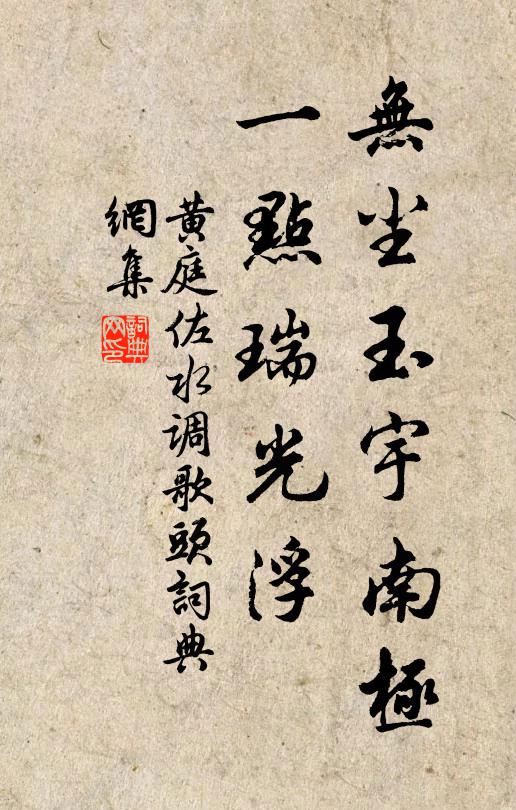 無尘玉宇南極
一點瑞光浮
黄庭佐水调歌頭詞典
網集
詞典網印